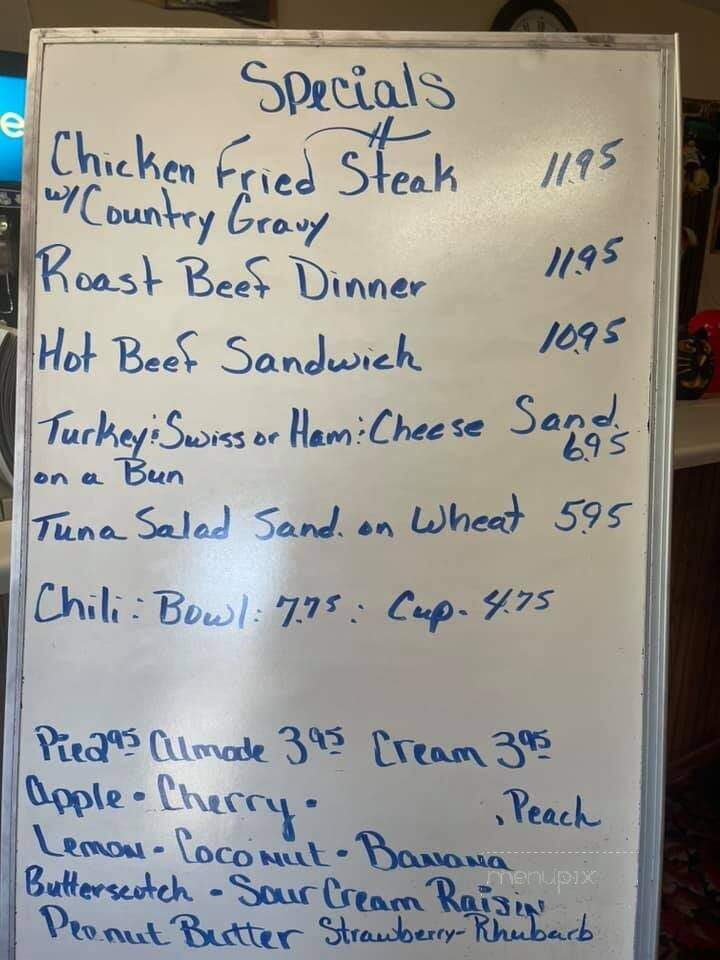 e
Specials
Chicken Fried Steak 11.95
w/ Country Gravy
Roast Beef Dinner 11.95
Hot Beef Sandwich 10.95
Turkey & Swiss or Ham & Cheese Sand. 6.95
on a Bun
Tuna Salad Sand. on Wheat 5.95
Chili: Bowl: 7.75: Cup- 4.75
Pie 2.95 Almode 3.95 Cream 3.95
Apple - Cherry - , Peach
Lemon - Coconut - Banana
menupix
Butterscotch - Sour Cream Raisin
Peanut Butter Strawberry-Rhubarb